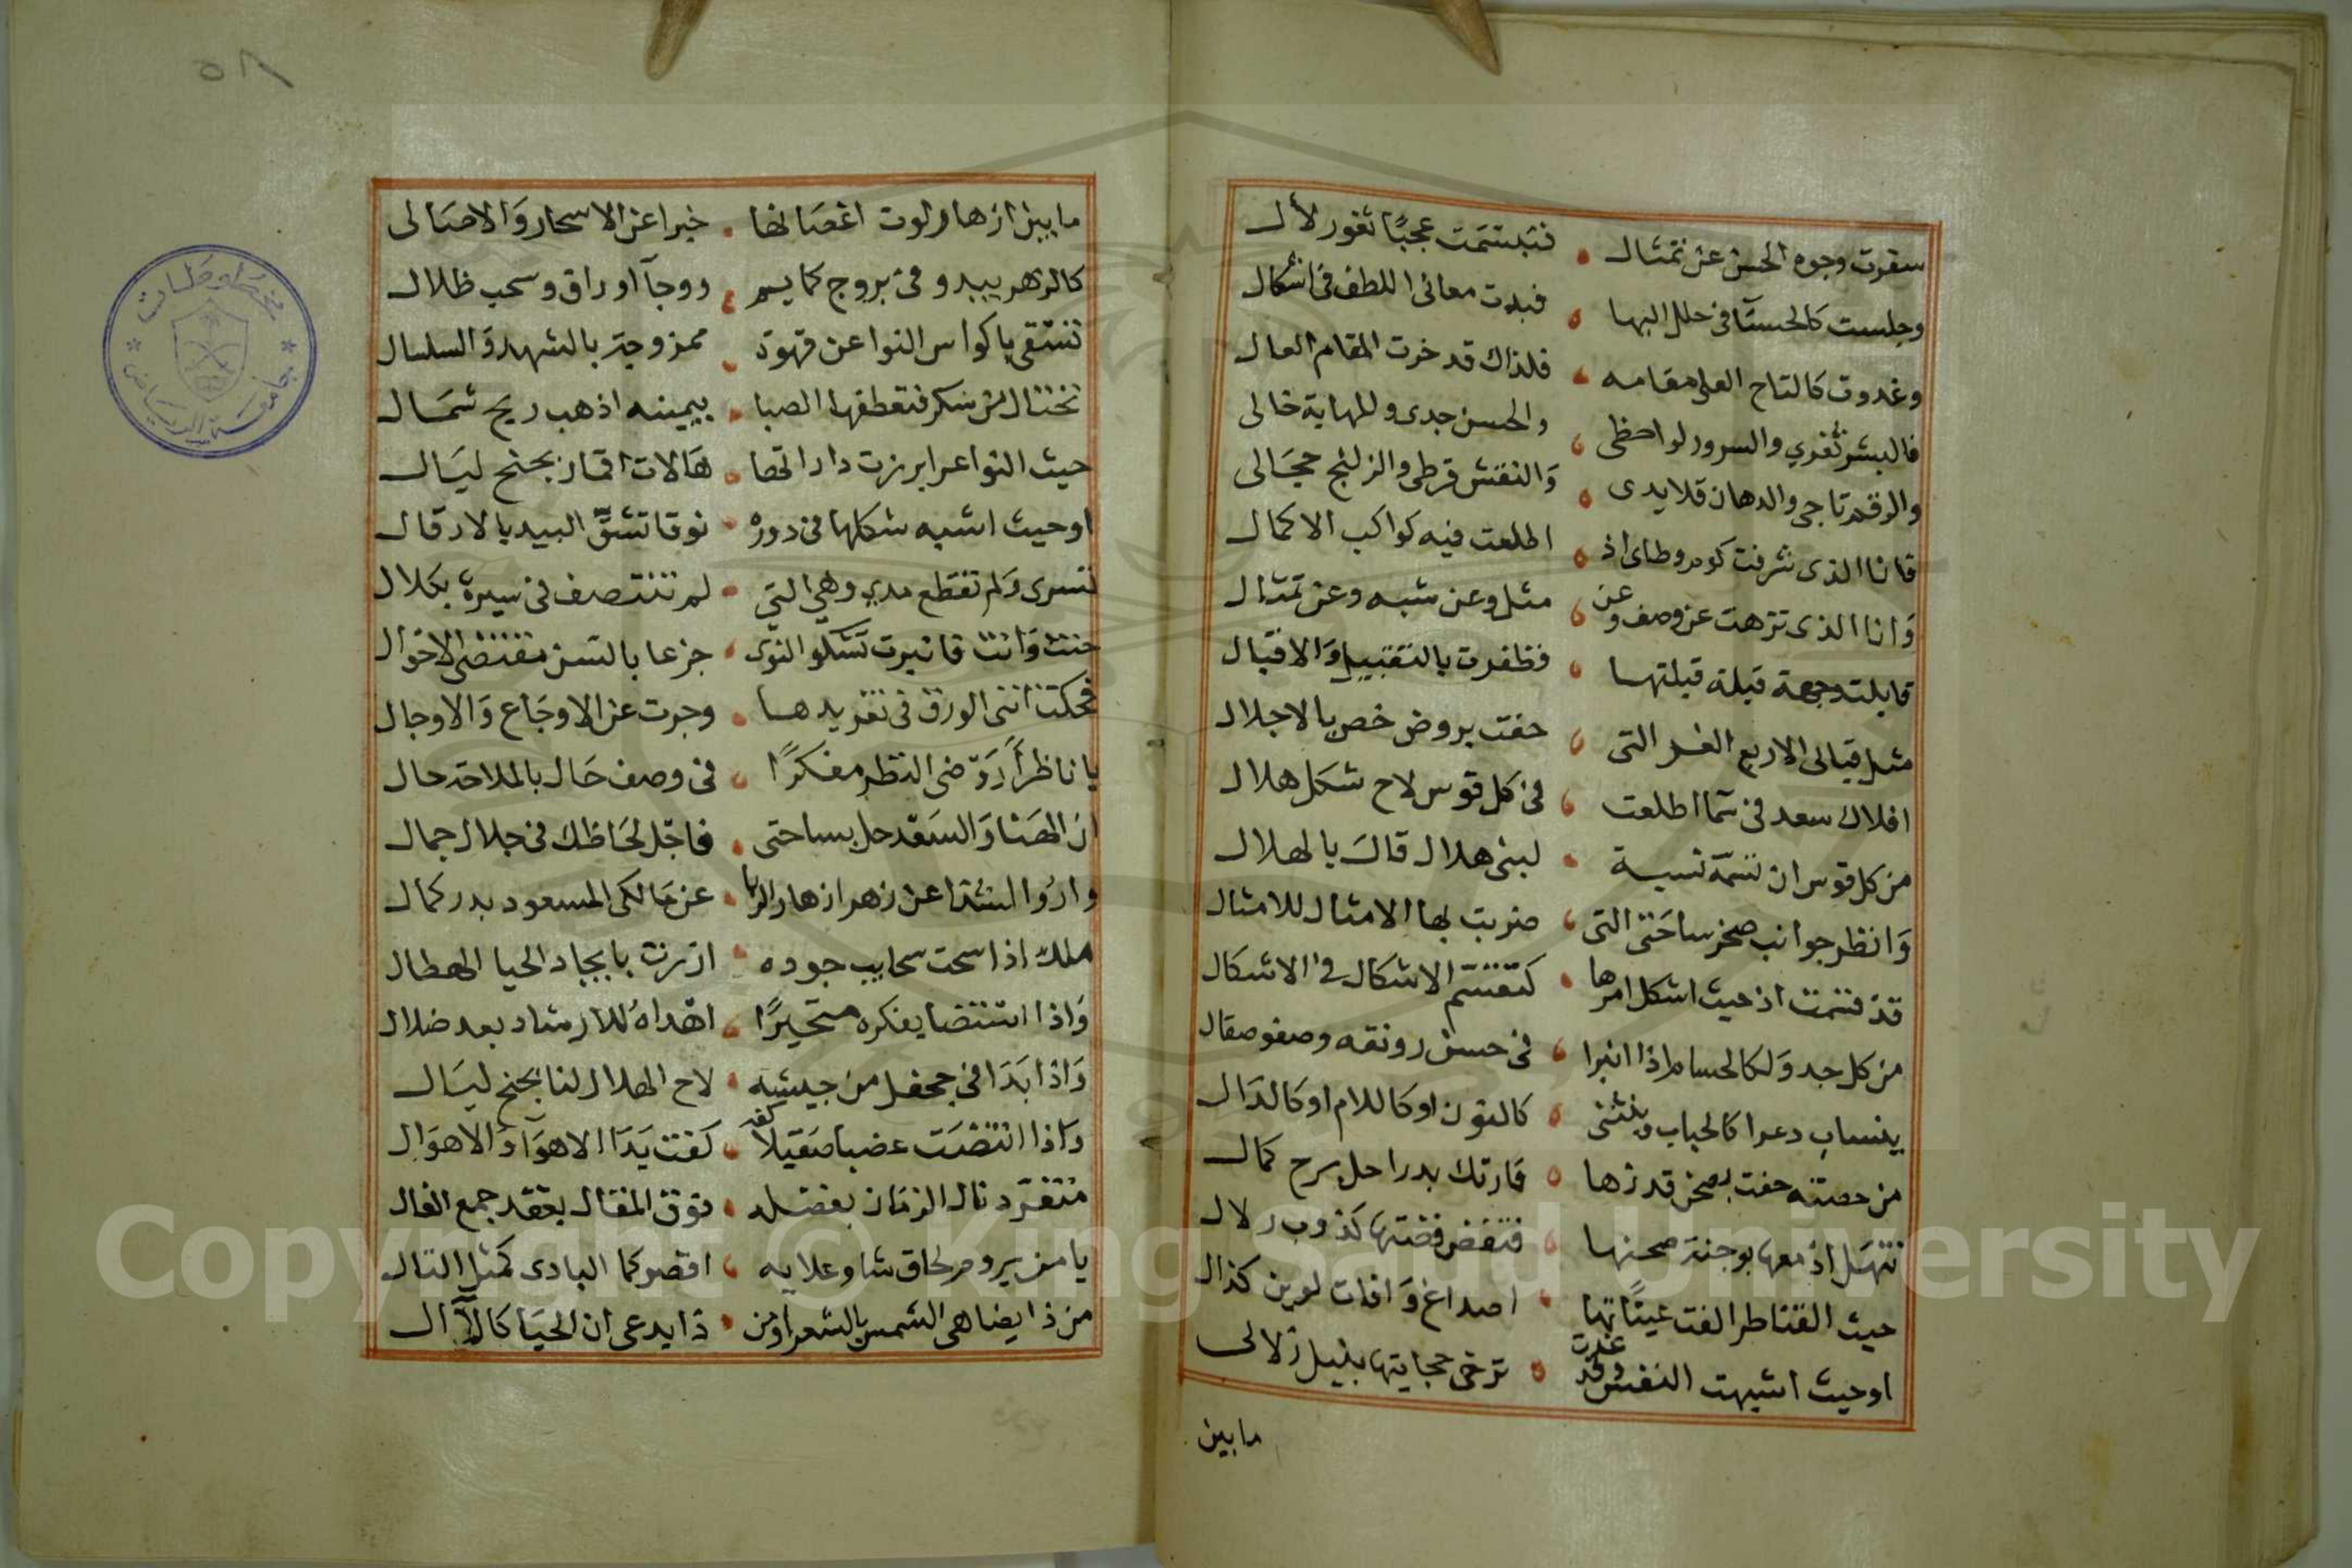 سفرت وجوه الحسن عن تمثال • فتبسمت عجبًا ثغور لأل
وجليت كالحسنآ فى حلل البها • فبدت معانى اللطف فى اشكال
وغدوت كالتاج العلى مقامه • فلذاك قد حزت المقام العال
فالبشر ثغري والسرور لواحظى • والحسن جدى وللمهاية خالى
والرقم تاجى والدهان قلايدى • وَالنقش قرطى والزلنج حجَالى
فانا الذى شرفت كوم وطاى اذ • اطلعت فيه كواكب الاكمال
وَانا الذى تزهت عن وصف وعن • مثل وعن شبه وعن تمثال
قابلت وجهة قبلة قبلتها • فظفرت بالتقبيل وَالاقبال
مثل قبالى الاربع الغر التى • حفت بروض خص بالاجلال
افلاك سعد فى سما اطلعت • فى كل قوس لاح شكل هلال
من كل قوس ان تسمّه نسبة • لبنى هلال قال يالهلال
وَانظر جوانب صحن ساحَتى التى • ضربت بها الامثال للامثال
قد قسمت اذ حيث اشكل امرها • كتقسّم الاشكال فى الاشكال
من كل جدوَل كالحسام اذا انبرا • فى حسن رونقه وصفو صقال
ينساب دعرا كالحباب وينثنى • كالنون او كاللام او كالدَال
من حصته حفت بصحن قد زها • فارتك بدرا حل برج كمال
تنهَل اذ معها بوجنة صحنها • فتفض فضتها كذوب زلال
حيث القناطر الفت عيناتها • اصداغ وَافات لوين كذال
اوحيث اشبهت النفس وقد غدت • ترخى حجابتها بنيل زلالى
مابين
مابين ازهار لوت اغصانها • خبرا عن الاسحار وَالاصَالى
كالزهر يبدو فى بروج كمايم • ودوجآ اوراق وسحب ظلال
تستقى باكواس النوا عن قهوة • ممزوجة بالشهد وَالسلسال
تختال من سكر فتعطفها الصبا • بيمينه اذ هب ريح شمَال
حيث النواعر ابرزت داراتها • هَالات اقمار بجنح ليَال
اوحيث اشبه شكلها فى دوره • نوقا تشقّ البيد بالارقال
تسرى وَلم تقطع مدي وهى التى • لم تنتصف فى سيرة بكلال
حنت وَانت فانبرت تشكو النوَى • جزعا بالسن مقتضى الاحوَال
فحكت انثى الورق فى تغريدها • وجرت عن الاوجَاع وَالاوجال
يا ناظرًا رَوّضى النظر مفكرًا • فى وصف حَال بالملاحة حال
ان الهَنا وَالسَعد حل بساحتى • فاجَل لحَاظك فى جلال جمال
واروُ الشذا عن زهر ازهار الربا • عن مَالكى المسعود بدر كمال
ملك اذا سحت سحايب جوده • ازرت بابجاد الحيا الهطال
وَاذا استضا بفكره متحيرًا • اهداهُ للارشاد بعد ضلال
وَاذا بَدَا فى جحفل من جيشه • لاح الهلال لنا بجنح ليَال
وَاذا انتضَت عضبا صَقيلا كفه • كفت يَدَا الاهوآ وَالاهوَال
متفرّد نال الزمَان بفضله • فوق المقال بعقد جمع الغال
يا من يروم لحاق شاو علايه • اقصر كما البادى كمثل التال
من ذا يضاهى الشمس بالشعرا ومن • ذا يدعى ان الحيَا كالآال